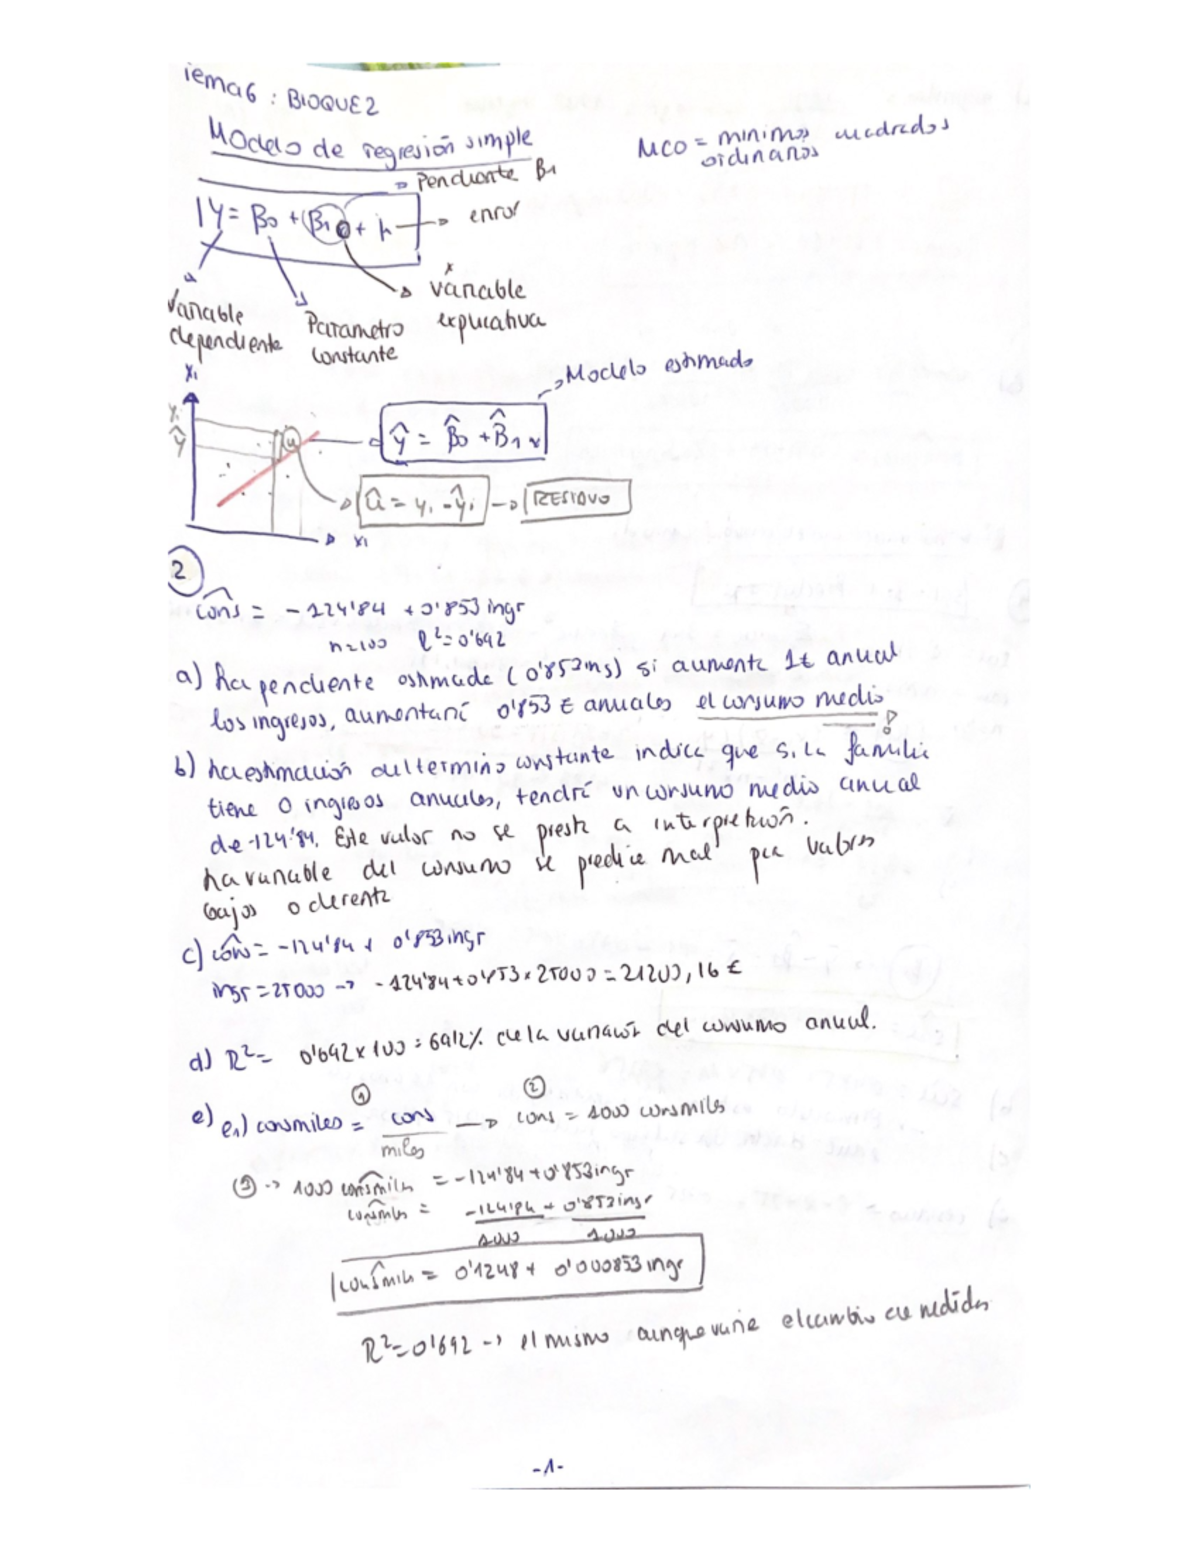 Tema 6 : BLOQUE 2
Modelo de regresión simple
MCO = minimos cuadrados
ordinarios
→ Pendiente B1
Y = β0 + β1 + μ → error
x
variable
explicativa
Variable
dependiente
Parametro
constante
X1
→ Modelo estimado
Yi
ŷ
û
ŷ = β̂0 + β̂1 x
û = yi - ŷi → RESIDUO
X1
2
côns = -124'84 + 0'853 ingr
n=100 R²=0'692
a) La pendiente estimada (0'853 ins) si aumenta 1€ anual
los ingresos, aumentará 0'853 € anuales el consumo medio
b) La estimación del termino constante indica que si la familia
tiene 0 ingresos anuales, tendrá un consumo medio anual
de -124'84. Este valor no se presta a interpretación.
La variable del consumo se predice mal por valores
bajos o de renta
c) côns = -124'84 + 0'853 ingr
ingr = 25000 → -124'84 + 0'853 x 25000 = 21200,16 €
d) R² = 0'692 x 100 = 69'2% de la variación del consumo anual.
1 2
e) e1) consmiles = cons → cons = 1000 consmiles
miles
→ 1000 consmiles = -124'84 + 0'853 ingr
consmiles = -124'84 + 0'853 ingr
1000 1000
consmiles = 0'1248 + 0'000853 ingr
R² = 0'692 → el mismo aunque varíe el cambio de medidas
-1-